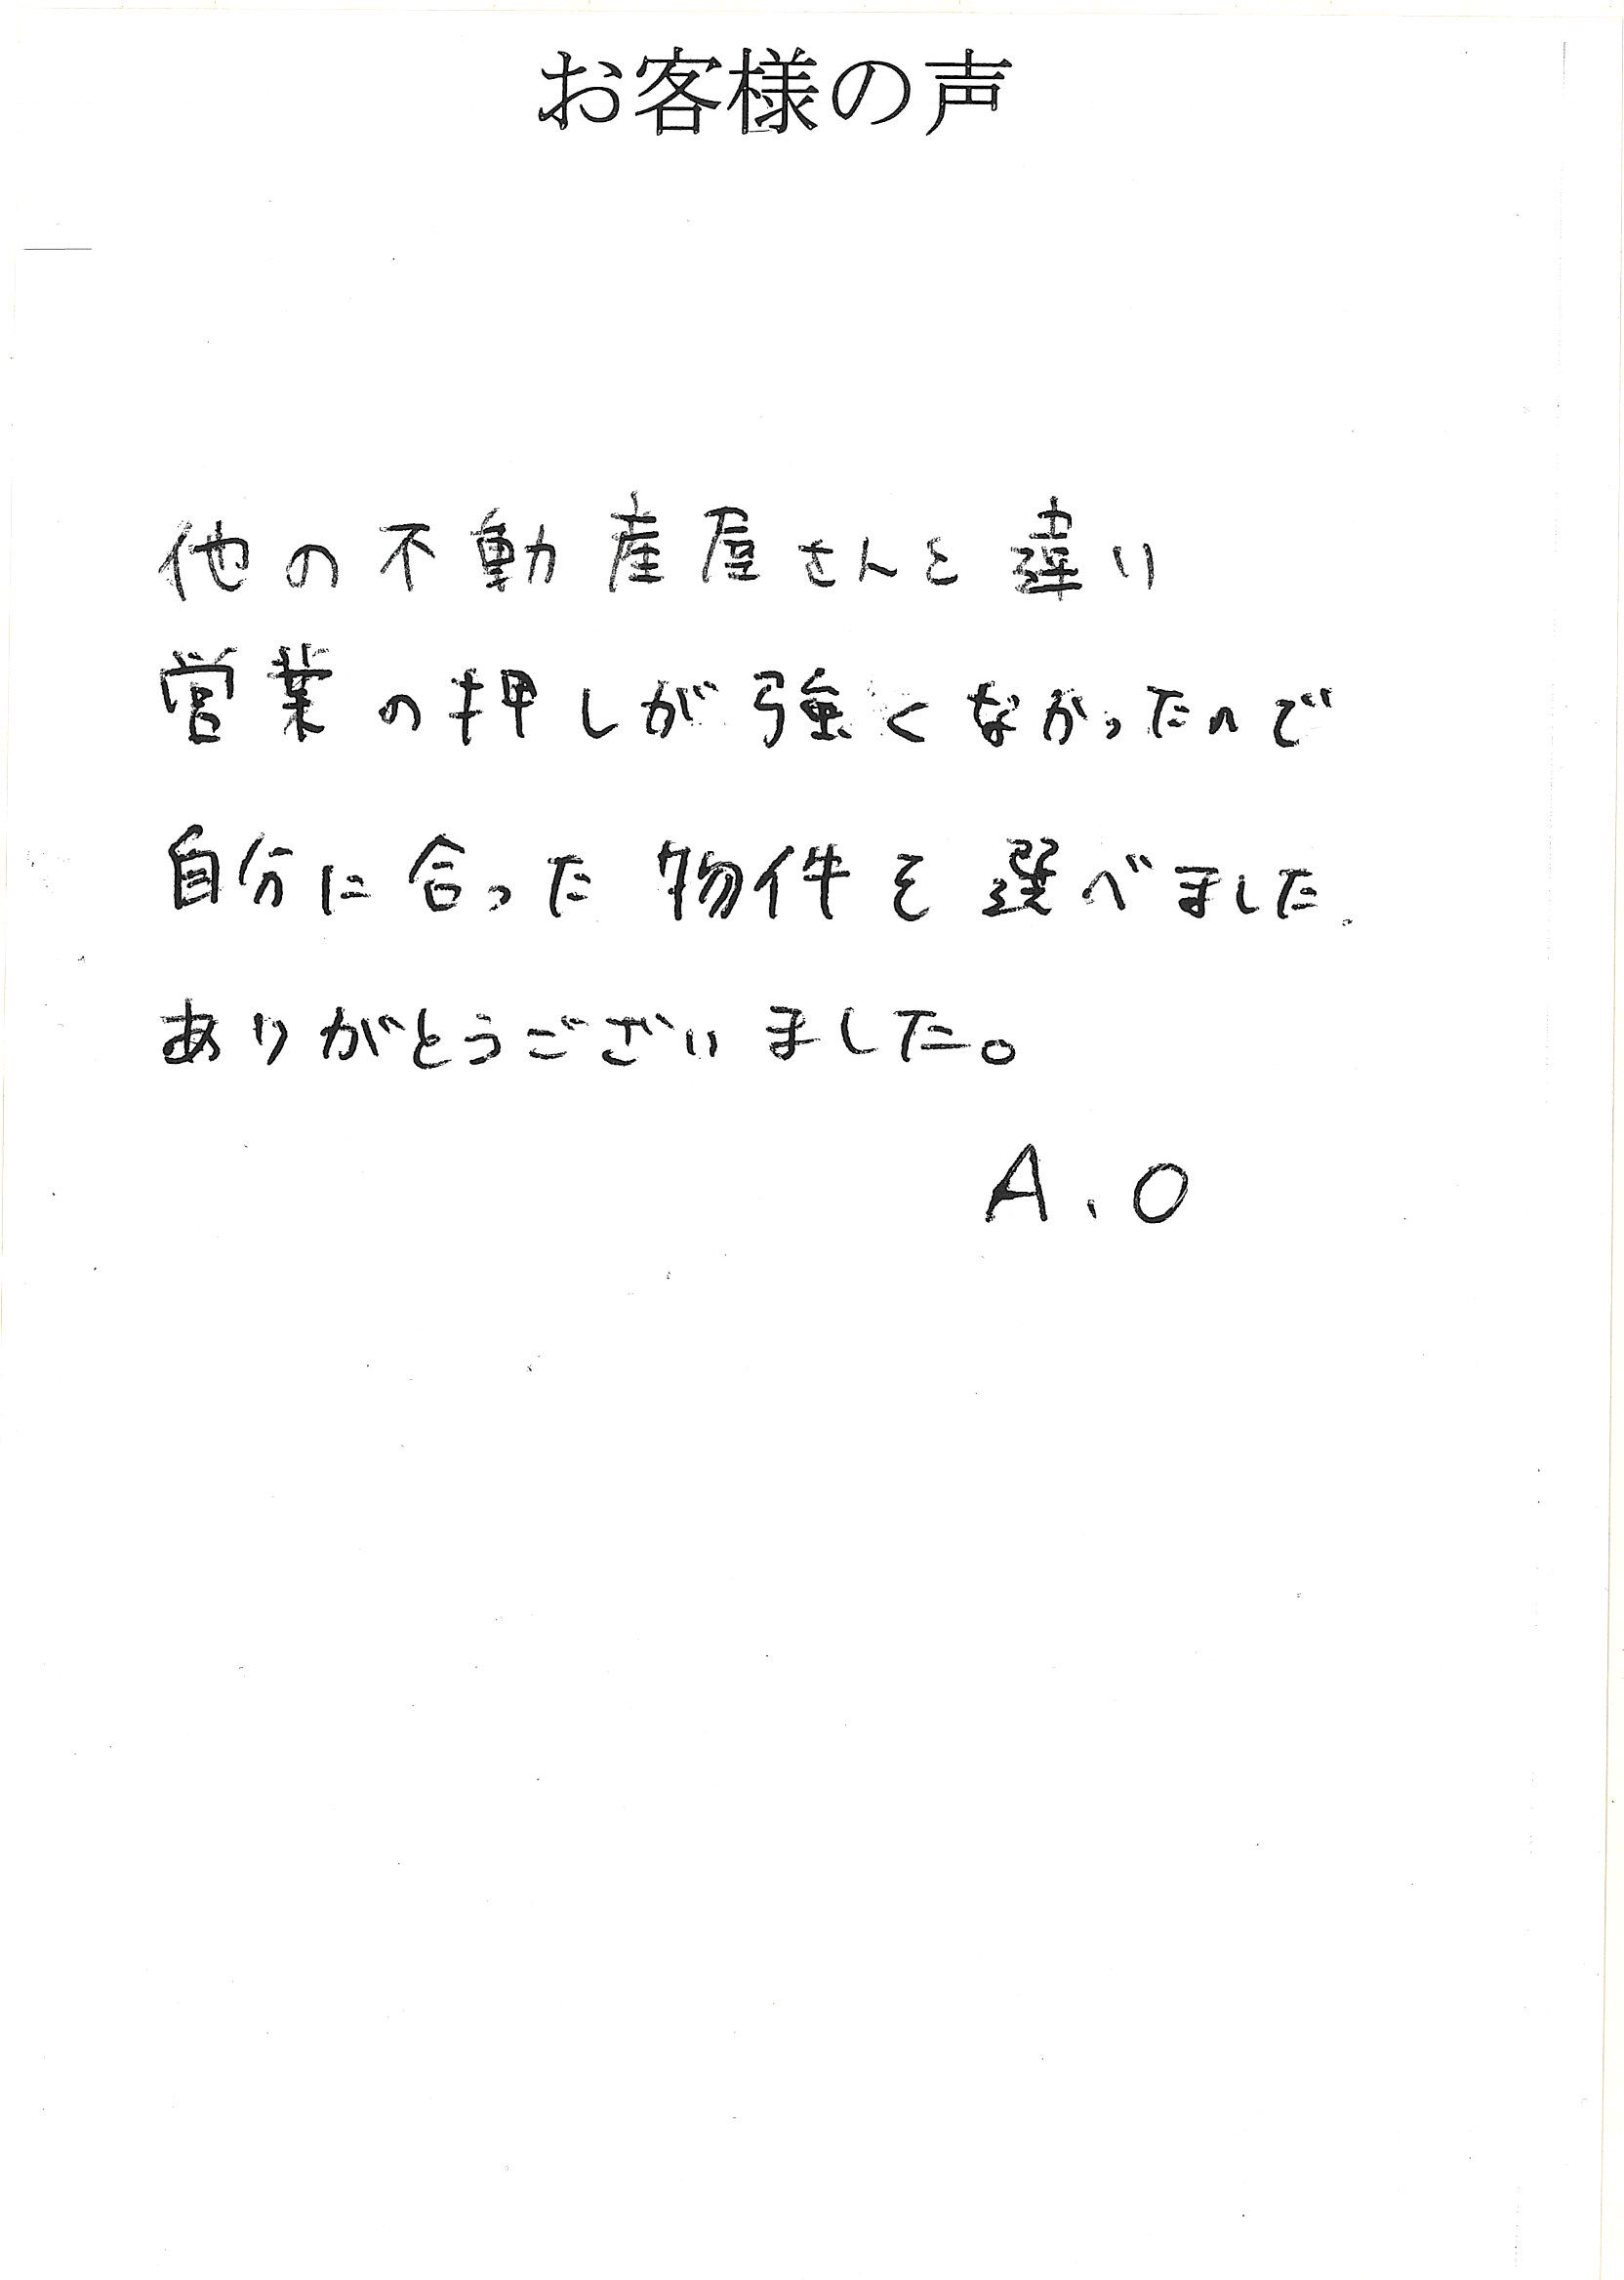 お客様の声
他の不動産屋さんと違い
営業の押しが強くなかったので
自分に合った物件を選べました.
ありがとうございました。
A.O